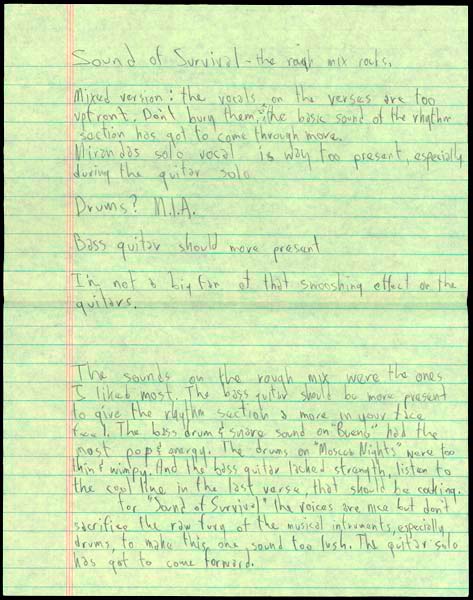 Sound of Survival - the rough mix rocks.
Mixed version: the vocals on the verses are too
upfront. Don't bury them, the basic sound of the rhythm
section has got to come through more.
Mirandas solo vocal is way too present, especially
during the guitar solo
Drums? M.I.A.
Bass guitar should more present
I'm not a big fan of that swooshing effect on the
guitars.
The sounds on the rough mix were the ones
I liked most. The bass guitar should be more present
to give the rhythm section a more in your face
feel. The bass drum & snare sound on "Bueno" had the
most pop & energy. The drums on "Moscow Nights" were too
thin & wimpy. And the bass guitar lacked strength, listen to
the cool line in the last verse, that should be cooking.
For "Sound of Survival" the voices are nice but don't
sacrifice the raw fury of the musical intruments, especially
drums, to make this one sound too lush. The guitar solo
has got to come forward.